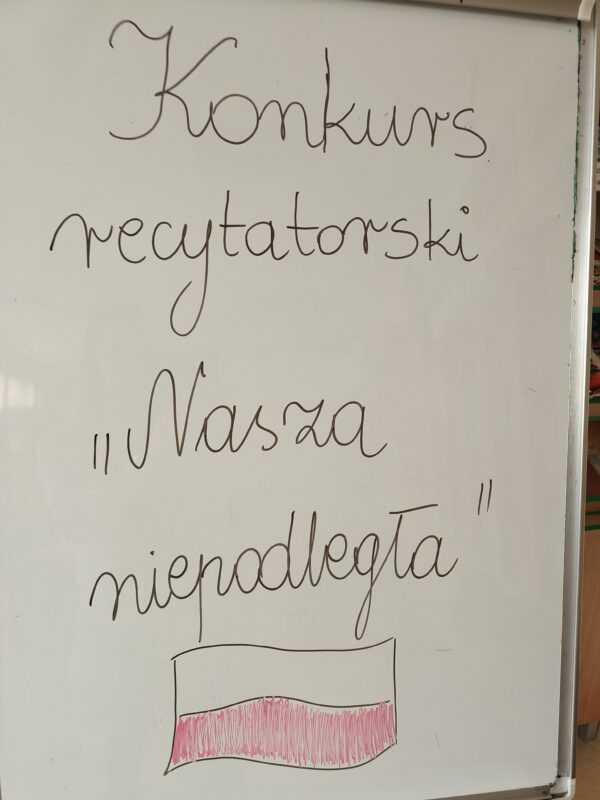 Konkurs
recytatorski
„Nasza
niepodległa"